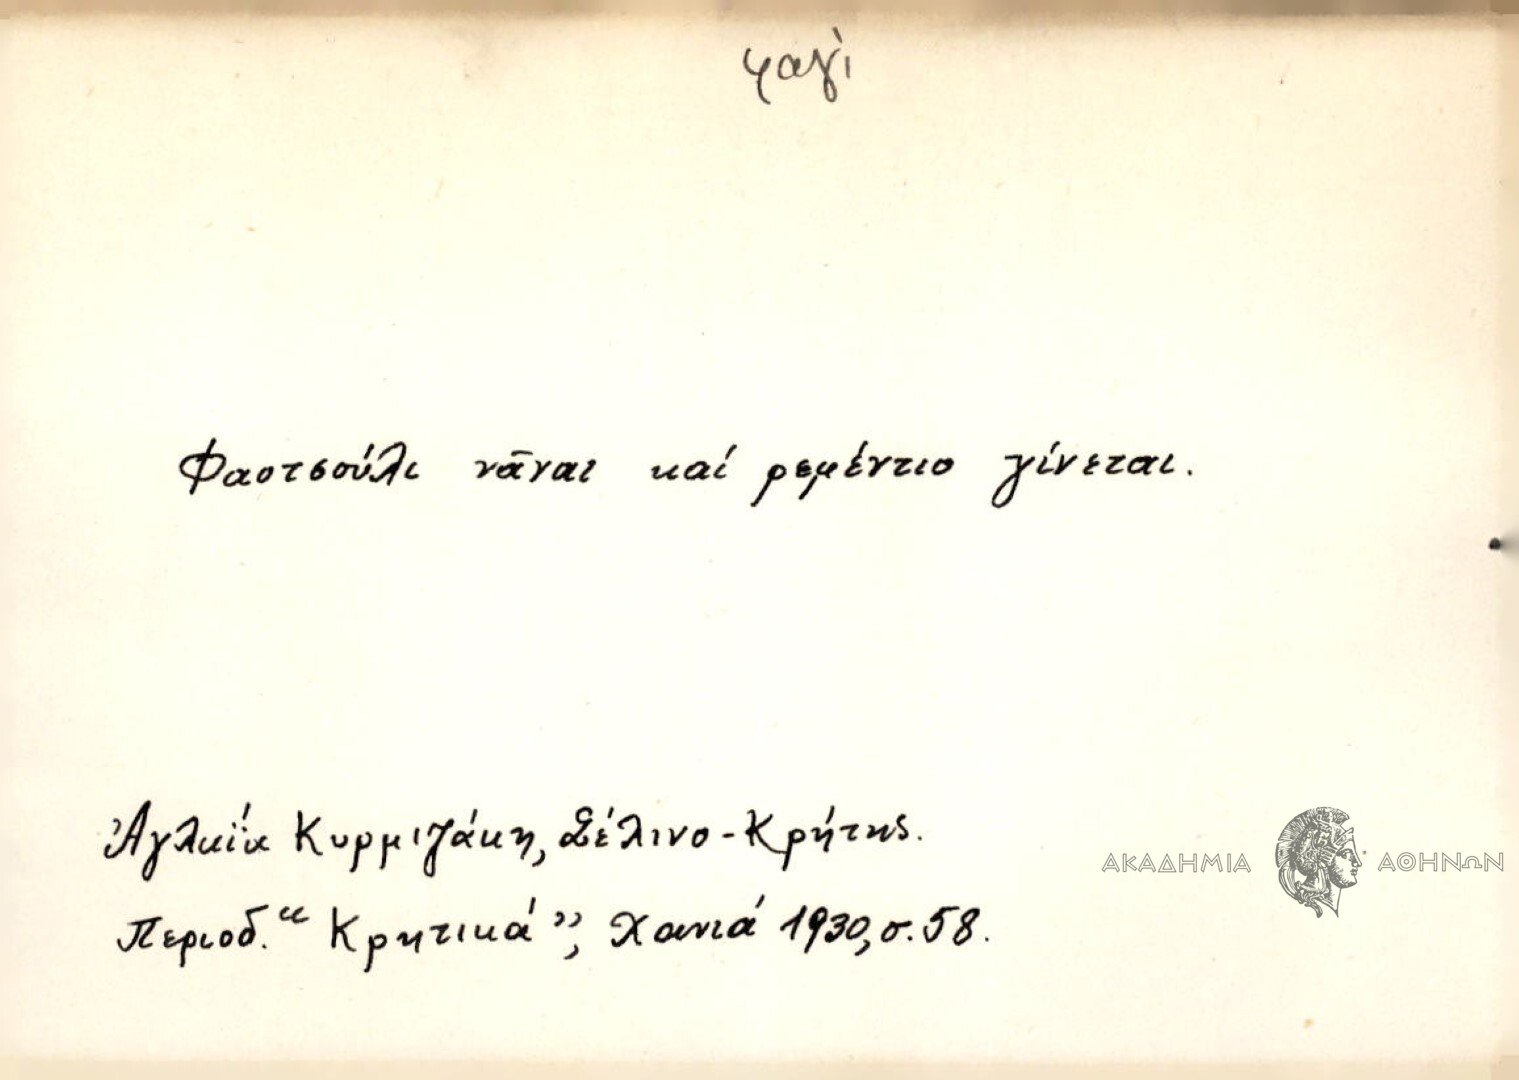 φαγὶ
Φαοτσούλι νἆναι καί ρεμέντιο γίνεται.
Ἀγλαΐα Κυρμιζάκη, Σέλινο-Κρήτης.
Περιοδ. “Κρητικά”, Χανιά 1930, σ. 58.
ΑΚΑΔΗΜΙΑ ΑΘΗΝΩΝ